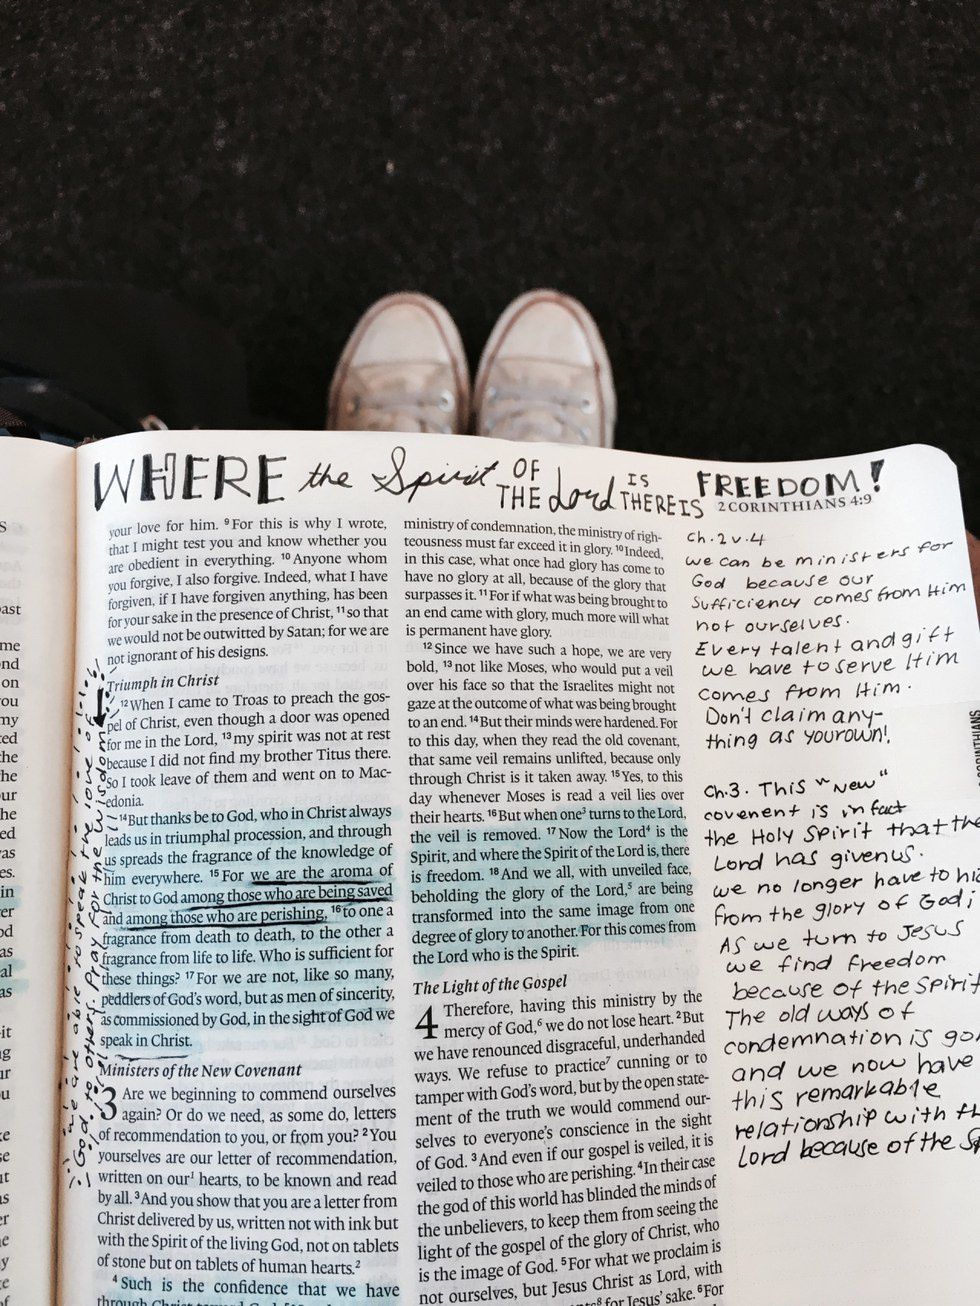 WHERE the Spirit OF THE Lord IS THERE IS FREEDOM!
2 CORINTHIANS 4:9
your love for him. ⁹For this is why I wrote,
that I might test you and know whether you
are obedient in everything. ¹⁰Anyone whom
you forgive, I also forgive. Indeed, what I have
forgiven, if I have forgiven anything, has been
for your sake in the presence of Christ, ¹¹so that
we would not be outwitted by Satan; for we are
not ignorant of his designs.
Triumph in Christ
¹²When I came to Troas to preach the gos-
pel of Christ, even though a door was opened
for me in the Lord, ¹³my spirit was not at rest
because I did not find my brother Titus there.
So I took leave of them and went on to Mac-
edonia.
¹⁴But thanks be to God, who in Christ always
leads us in triumphal procession, and through
us spreads the fragrance of the knowledge of
him everywhere. ¹⁵For we are the aroma of
Christ to God among those who are being saved
and among those who are perishing, ¹⁶to one a
fragrance from death to death, to the other a
fragrance from life to life. Who is sufficient for
these things? ¹⁷For we are not, like so many,
peddlers of God's word, but as men of sincerity,
as commissioned by God, in the sight of God we
speak in Christ.
Ministers of the New Covenant
3 Are we beginning to commend ourselves
again? Or do we need, as some do, letters
of recommendation to you, or from you? ²You
yourselves are our letter of recommendation,
written on our¹ hearts, to be known and read
by all. ³And you show that you are a letter from
Christ delivered by us, written not with ink but
with the Spirit of the living God, not on tablets
of stone but on tablets of human hearts.²
⁴Such is the confidence that we have
through Christ toward God.
ministry of condemnation, the ministry of righ-
teousness must far exceed it in glory. ¹⁰Indeed,
in this case, what once had glory has come to
have no glory at all, because of the glory that
surpasses it. ¹¹For if what was being brought to
an end came with glory, much more will what
is permanent have glory.
¹²Since we have such a hope, we are very
bold, ¹³not like Moses, who would put a veil
over his face so that the Israelites might not
gaze at the outcome of what was being brought
to an end. ¹⁴But their minds were hardened. For
to this day, when they read the old covenant,
that same veil remains unlifted, because only
through Christ is it taken away. ¹⁵Yes, to this
day whenever Moses is read a veil lies over
their hearts. ¹⁶But when one³ turns to the Lord,
the veil is removed. ¹⁷Now the Lord⁴ is the
Spirit, and where the Spirit of the Lord is, there
is freedom. ¹⁸And we all, with unveiled face,
beholding the glory of the Lord,⁵ are being
transformed into the same image from one
degree of glory to another. For this comes from
the Lord who is the Spirit.
The Light of the Gospel
4 Therefore, having this ministry by the
mercy of God,⁶ we do not lose heart. ²But
we have renounced disgraceful, underhanded
ways. We refuse to practice⁷ cunning or to
tamper with God's word, but by the open state-
ment of the truth we would commend our-
selves to everyone's conscience in the sight
of God. ³And even if our gospel is veiled, it is
veiled to those who are perishing. ⁴In their case
the god of this world has blinded the minds of
the unbelievers, to keep them from seeing the
light of the gospel of the glory of Christ, who
is the image of God. ⁵For what we proclaim is
not ourselves, but Jesus Christ as Lord, with
⁸ for Jesus' sake. ⁶For
Ch. 2 v. 4
we can be ministers for
God because our
Sufficiency comes from Him
not ourselves.
Every talent and gift
we have to serve Him
comes from Him.
Don't claim any-
thing as your own!
Ch. 3. This "New"
covenent is in fact
the Holy Spirit that the
Lord has given us.
we no longer have to hi
from the glory of God;
As we turn to Jesus
we find freedom
because of the Spirit
The old ways of
condemnation is go
and we now have
this remarkable
relationship with th
Lord because of the Sp
we are able to speak the love of
God to others. Pray for the wisdom